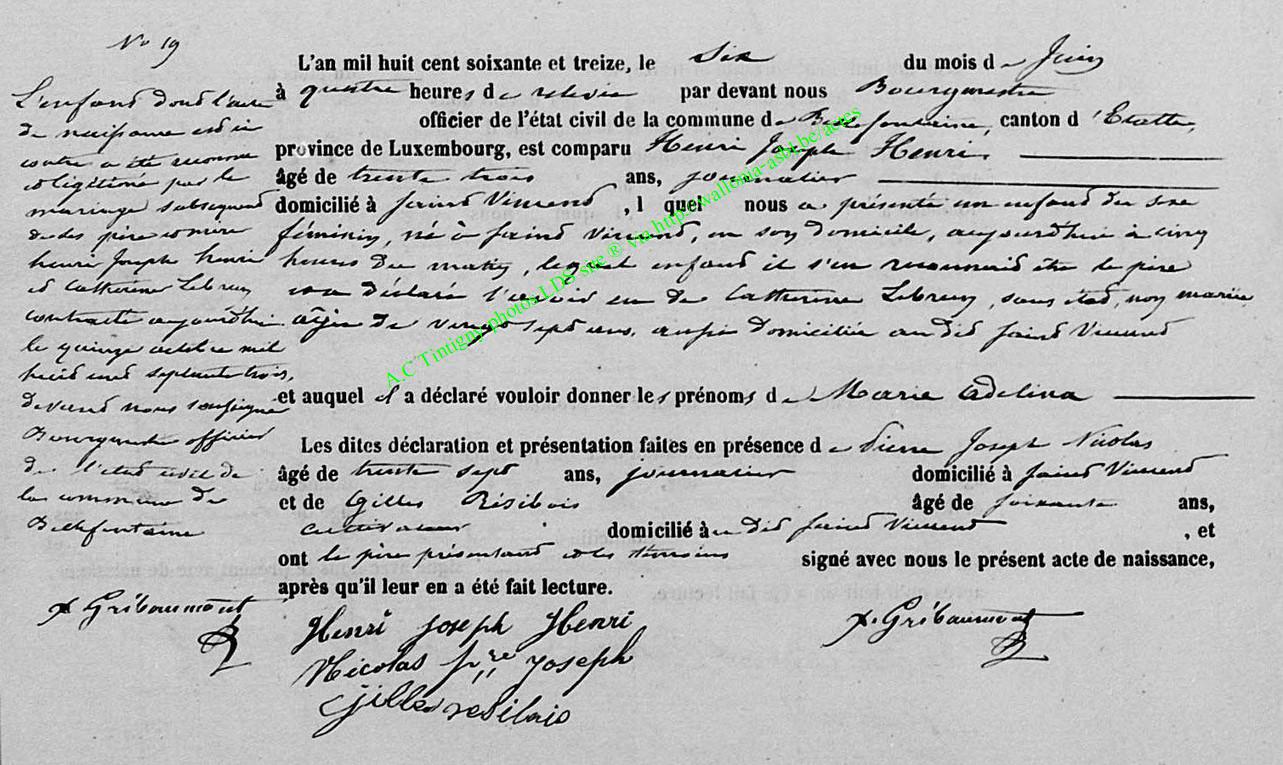 No 19
L'enfant dont l'acte
de naissance est ci
contre a été reconnu
et légitimé par le
mariage subséquent
de ses père et mère
henri Joseph henri
et Catherine Lebrun
contracté aujourdhui
le quinze octobre mil
huit cent septante trois,
devant nous soussigné
Bourgmestre officier
de l'état civil de
la commune de
Bellefontaine
x. Gribaumont
L'an mil huit cent soixante et treize, le Six du mois de Juin
à quatre heures de relevée par devant nous Bourgmestre
officier de l'état civil de la commune de Bellefontaine, canton d'Etalle,
province de Luxembourg, est comparu Henri Joseph Henri,
âgé de trente trois ans, journalier
domicilié à Saint Vincent, l quel nous a présenté un enfant du sexe
féminin, né à Saint Vincent, en son domicile, aujourdhui à cinq
heures du matin, lequel enfant il s'en reconnait être le père
et a déclaré l'avoir eu de Catherine Lebrun, sans état, non mariée
agée de vingt sept ans, aussi domiciliée au dit Saint Vincent
et auquel il a déclaré vouloir donner les prénoms de Marie Adelina
Les dites déclaration et présentation faites en présence de Pierre Joseph Nicolas
âgé de trente sept ans, journalier domicilié à Saint Vincent
et de Gilles Résibois âgé de soixante ans,
cultivateur domicilié au dit Saint Vincent, et
ont le père présentant et les témoins signé avec nous le présent acte de naissance,
après qu'il leur en a été fait lecture.
Henri Joseph Henri
Nicolas p,,re Joseph
Gilles resibois
x. Gribaumont
A.C Tintigny photos LDS site ® via http://wallonia-asbl.be/actes